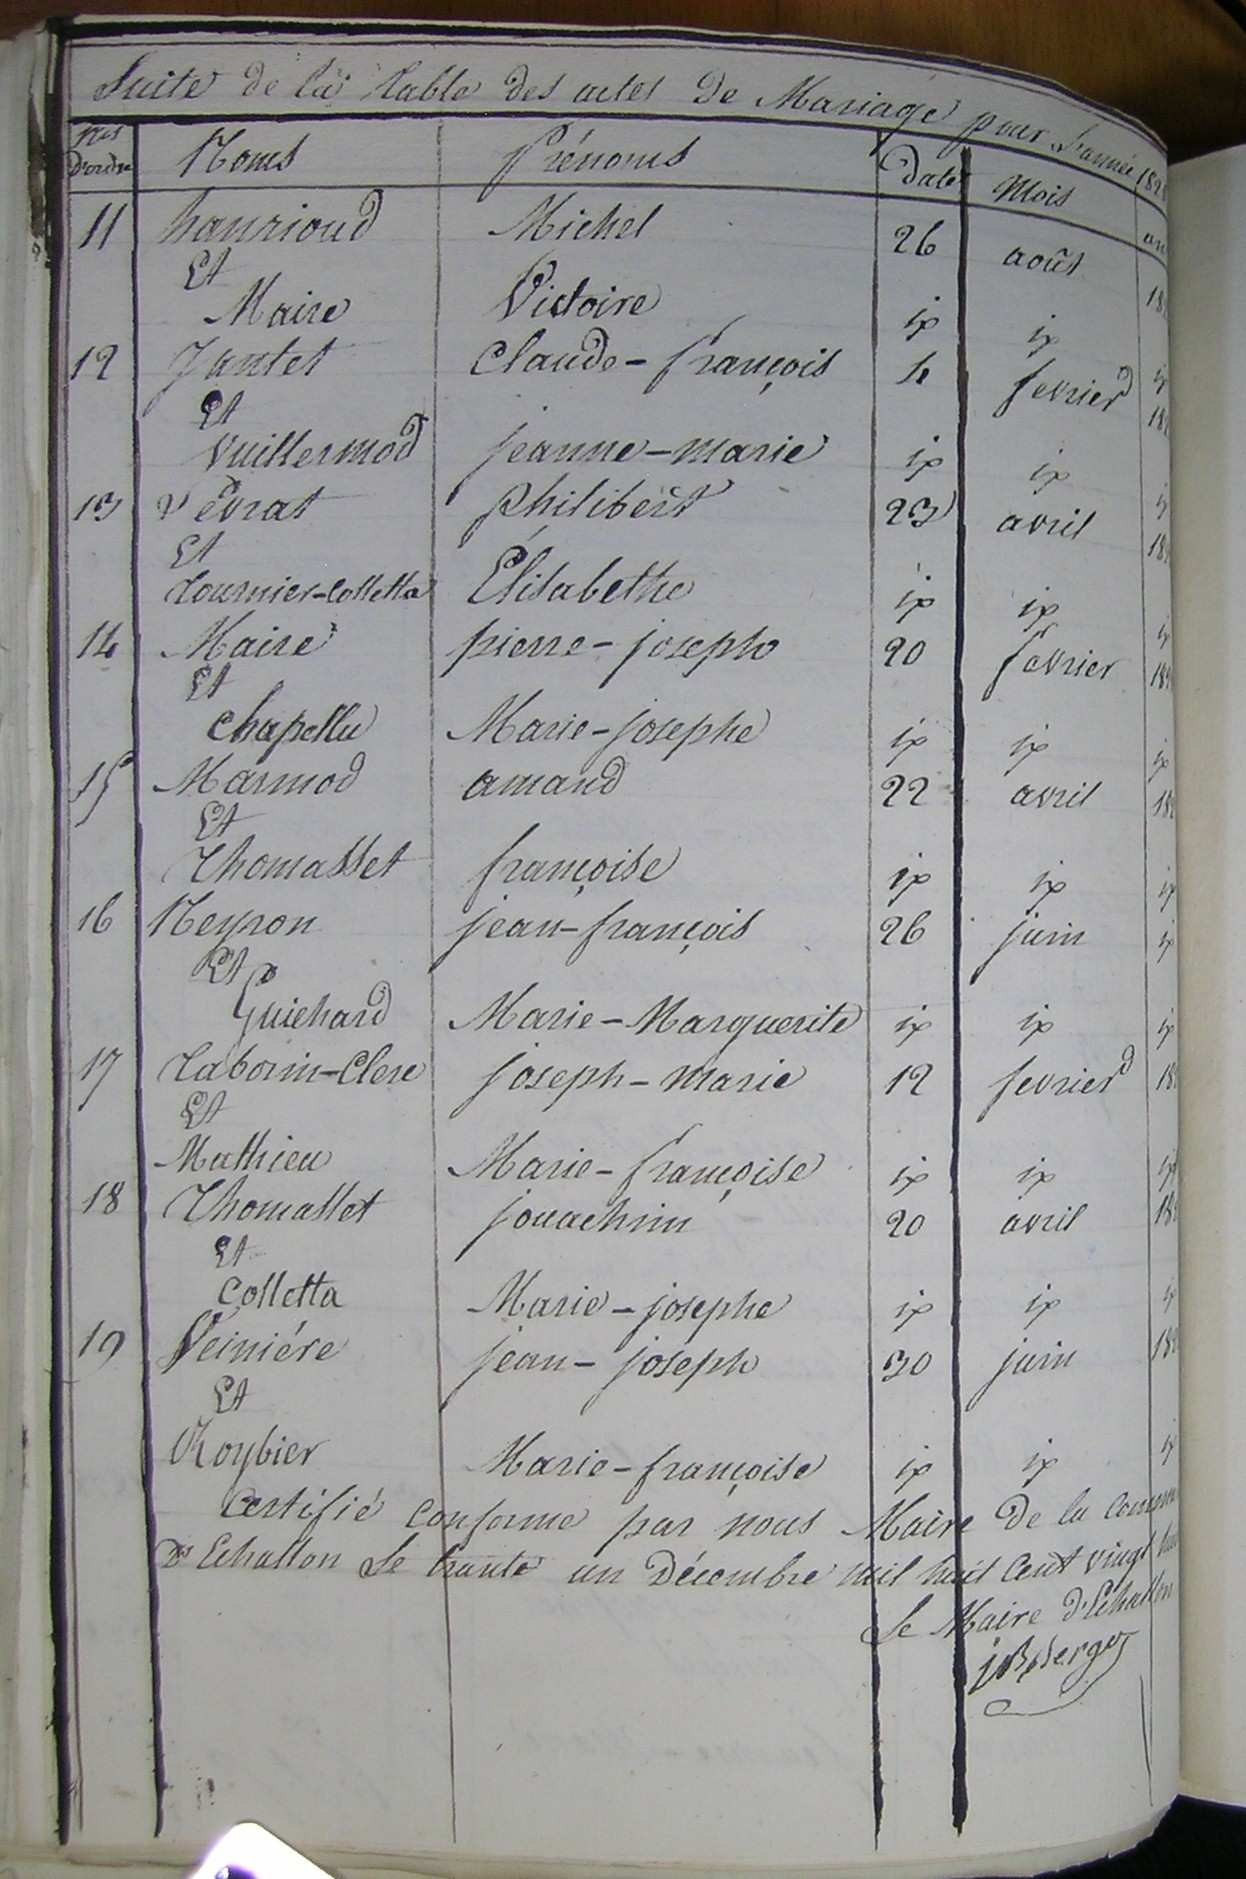 Suite de la table des actes De Mariage pour l'année 182
Nos d'ordre Noms Prénoms Date Mois an
11 hanrioud Michel 26 août 182
Et
Maire Victoire ip ip ip
12 Jantet Claude-françois 4 fevrier 182
Et
Vuillermod jeanne-marie ip ip ip
13 Pevrat philibert 23 avril 182
Et
Tournier-Colletta Élisabethe ip ip ip
14 Maire pierre-joseph 20 fevrier 182
Et
Chapellu Marie-josephe ip ip ip
15 Marmod amand 22 avril 182
Et
Thomasset françoise ip ip ip
16 Neyron jean-françois 26 juin ip
Et
Guichard Marie-Marguerite ip ip ip
17 Taborin-Clerc joseph-marie 12 fevrier 182
Et
Mathieu Marie-françoise ip ip ip
18 Thomasset jouachim 20 avril 182
Et
Colletta Marie-josephe ip ip ip
19 Veiniére jean-joseph 30 juin 182
Et
Roybier Marie-françoise ip ip ip
Certifié Conforme par nous Maire De la Commune
D'Echallon Le trante un Décembre mil huit Cent vingt huit
Le Maire d'Echallon